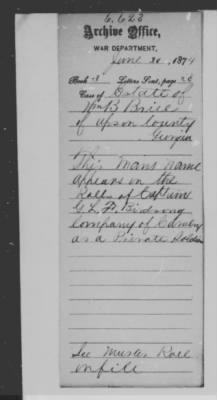 6,623
Archive Office,
WAR DEPARTMENT,
June 20, 1874
Book 8 Letters Sent, page 26
Case of Estate of
Wm B Brice
of Upson County
Georgia
This mans name
appears on the
Rolls of Captain
G L F Birdsong
Company of Cavalry
as a Private Soldier
See Muster Roll
on file